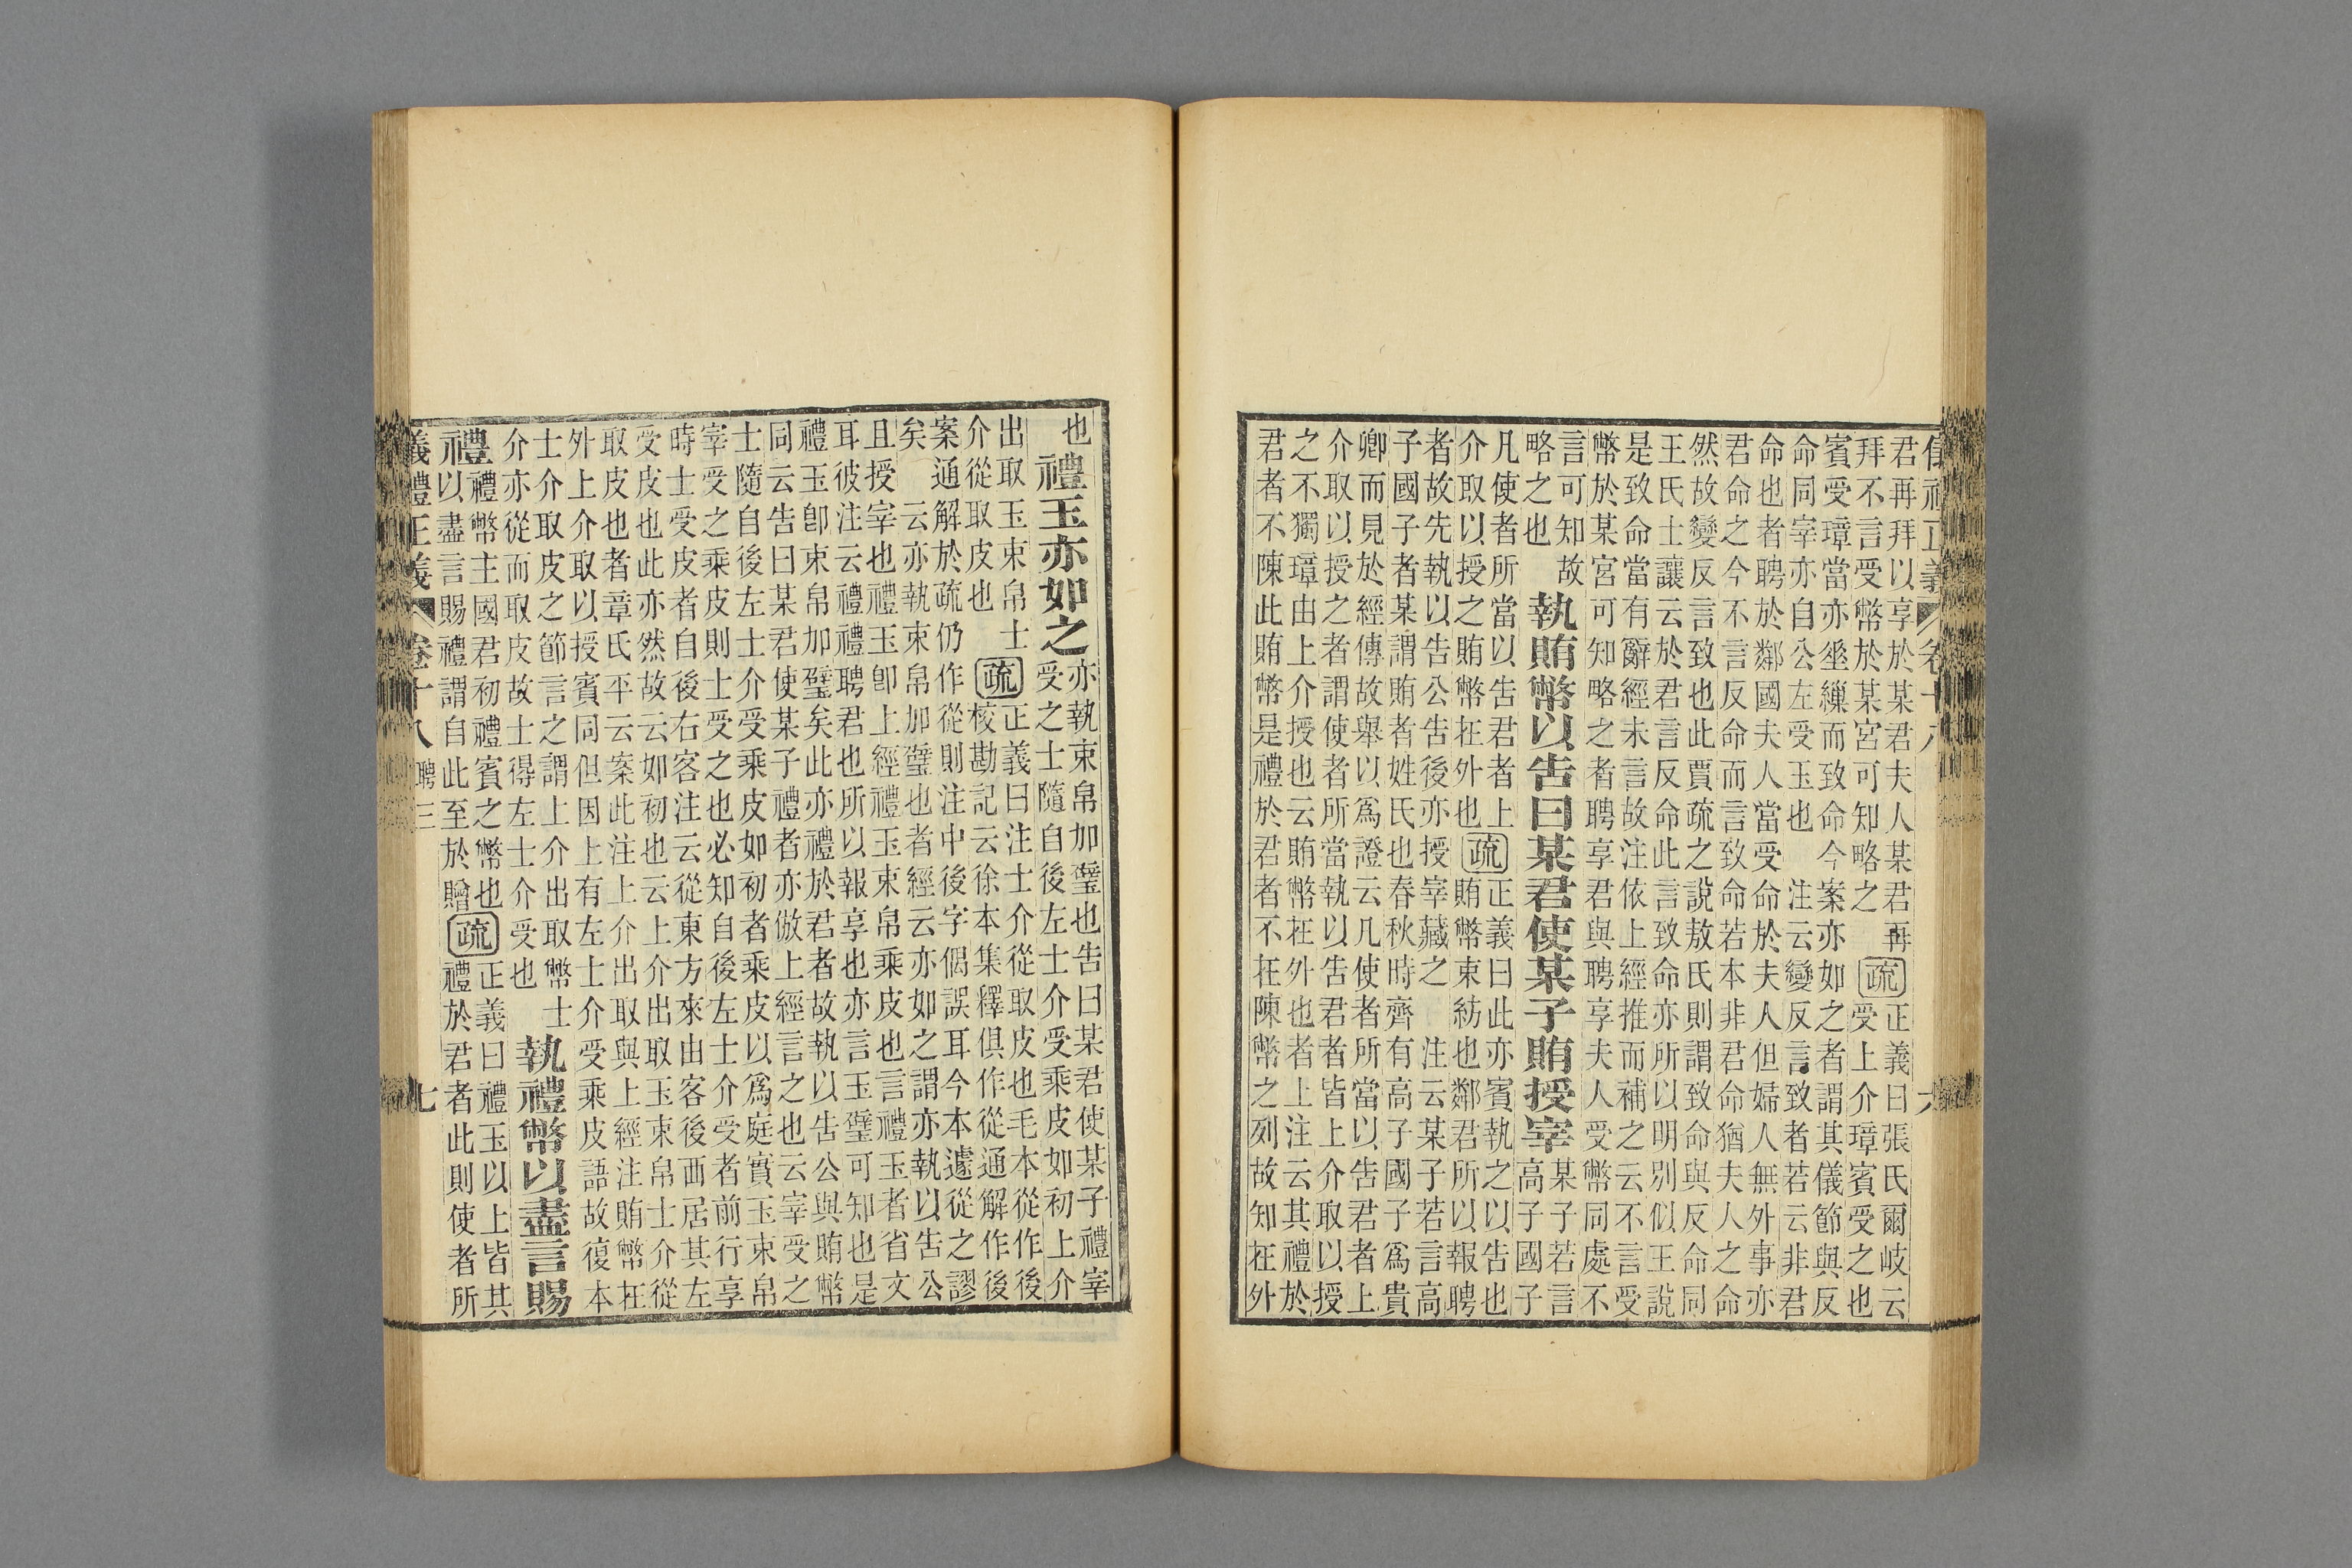 君再拜以享於某君夫人某君再 疏 正義曰張氏爾岐云
拜不言受幣於某宮可知略之 受上介璋賓受之也
賓受璋當亦坐纚而致命今案亦如之者謂其儀節與反
命同宰亦自公左受玉也 注云變反言致者若云非君
命也者聘於鄰國夫人當受命於夫人但婦人無外事亦
君命之今不言反命而言致命若本非君命猶夫人之命
然故變反言致也此賈疏之說敖氏則謂致命與反命同
王氏士讓云於君言反命此言致命亦所以明別似王說
是致命當有辭經未言故注依上經推而補之云不言受
幣於某宮可知略之者聘享君與聘享夫人受幣同處不
言可知故
略之也
執賄幣以告曰某君使某子賄授宰
某子若言
高子國子
凡使者所當以告君者上
介取以授之賄幣在外也
疏
正義曰此亦賓執之以告也
賄幣束紡也鄰君所以報聘
者故先執以告公告後亦授宰藏之 注云某子若言高
子國子者某謂賄者姓氏也春秋時齊有高子國子爲貴
卿而見於經傳故舉以爲證云凡使者所當以告君者上
介取以授之者謂使者所當執以告君者皆上介取以授
之不獨璋由上介授也云賄幣在外也者上注云其禮於
君者不陳此賄幣是禮於君者不在陳幣之列故知在外
也
禮玉亦如之
亦執束帛加璧也告曰某君使某子禮宰
受之士隨自後左士介受乘皮如初上介
出取玉束帛士
介從取皮也
疏
正義曰注士介從取皮也毛本從作後
校勘記云徐本集釋俱作從通解作後
案通解於疏仍作從則注中後字偶誤耳今本遽從之謬
矣 云亦執束帛加璧也者經云亦如之謂亦執以告公
且授宰也禮玉卽上經禮玉束帛乘皮也言禮玉者省文
耳彼注云禮禮聘君也所以報享也亦言玉璧可知也是
禮玉卽束帛加璧矣此亦禮於君者故執以告公與賄幣
同云告曰某君使某子禮者亦倣上經言之也云宰受之
士隨自後左士介受乘皮如初者乘皮以爲庭實玉束帛
宰受之乘皮則士受之也必知自後左士介受者前行享
時士受皮者自後右客注云從東方來由客後西居其左
受皮也此亦然故云如初也云上介出取玉束帛士介從
取皮也者章氏平云案此注上介出取與上經注賄幣在
外上介取以授賓同但因上有左士介受乘皮語故復本
士介取皮之節言之謂上介出取幣士
介亦從而取皮故士得左士介受也
執禮幣以盡言賜
禮
禮幣主國君初禮賓之幣也
以盡言賜禮謂自此至於贈
疏
正義曰禮玉以上皆其
禮於君者此則使者所
義禮正義 卷十八 聘三 七